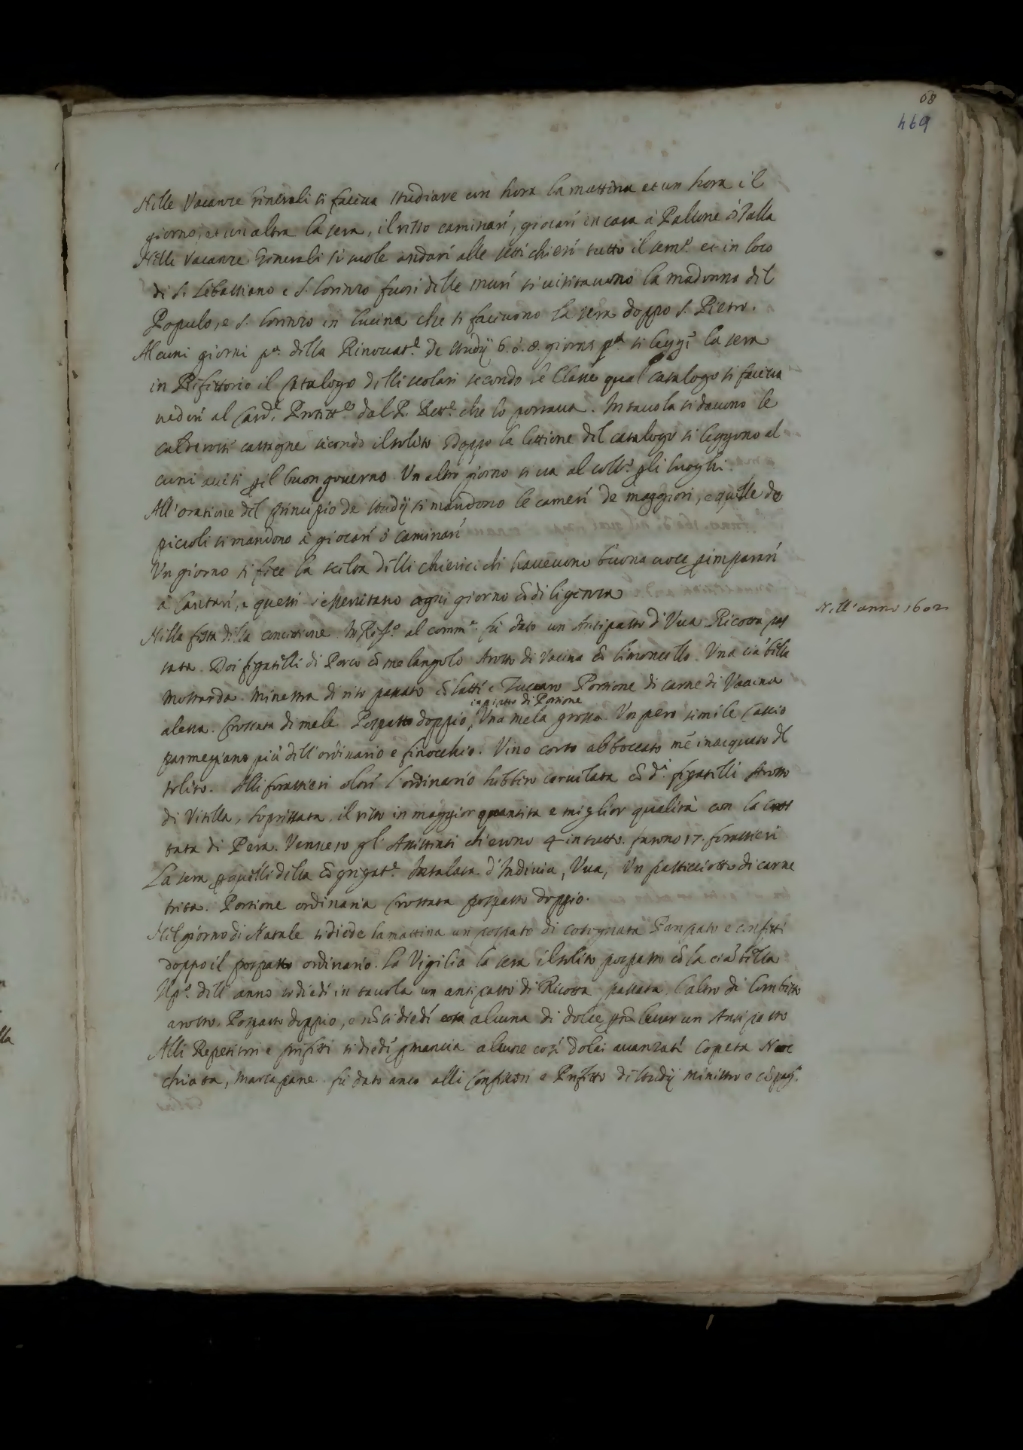 68
469
Nelle Vacanze Generali si faceva studiare un hora la mattina et un hora il
giorno, et un altra la sera, il resto caminare, giocare in casa à Pallone ò Palla
Nelle vacanze Generali si suole andare alle sette chiese tutto il temp.º et in loco
di S. Sebastiano e S. Lorenzo fuori delle mura si visitavono la madonna del
Populo, e S. Lorenzo in lucina che si facevono la sera doppo S. Pietro.
Alcuni giorni p.ª della Rinovat.e de studij 6. ò. 8. giorni p.ª si legge la sera
in Refettorio il Catalogo delli scolari secondo le Classe qual catalogo si faceva
vedere al Card.l Protett.e dal P. Rett.e che lo portava. In tavola si davono le
castagne secondo il solito Doppo la lettione del catalogo si leggono al
cuni avisi p il buon governo Un altro giorno si va al coll.º p li luoghi.
All'oratione del principio de studij si mandono le camere de maggiori, e quelle de
piccoli si mandono à giocare ò caminare
Un giorno si fece la scelta delli chierici che havevono buona voce p imparare
à cantare, e questi s'essercitano ogni giorno cõ diligenza
Nell'anno 1602
Nella festa della concettione In Ref.º al comm.e fu dato un Antipasto d'Uva Ricotta pas
sata. Doi fegatelli di Porco cõ melangolo Arosto di Vacina cõ limoncello. Una ciãbella
Mostarda. Minestra di riso passato cõ latte e Zuccaro Portione di carne di Vacina
in piatto di Portione
alessa. Crostata di mele. Pospasto doppio, Una mela grossa Un pero simile Cascio
parmegiano più dell'ordinario e finocchio. Vino corso abboccato mẽ inacquato del
solito. Alli forastieri oltre l'ordinario hebbero cervelata cõ d.i fegatelli Arosto
di Vitella, Soprissata, il resto in maggior quantita e miglior qualità con la crost
tata di Pera. Vennero gl'Assistenti ch'erono 4 in tutto furono 17. forastieri
La sera p quelli della Cõgregat.e Insalata d'Indivia, Uva, Un pasticciotto di carne
trita. Portione ordinaria Crostata pospasto doppio.
Nel giorno di Natale si diede la mattina un pospasto di cotognata Panpato e confetti
doppo il pospasto ordinario. La Vigilia la sera il solito pospasto cõ la ciãbella
p.º dell'anno si diede in tavola un antipasto di Ricotta passata, l'altro di Lombetto
arosto. Pospasto doppio, e nõ si diede cosa alcuna di dolce un Antipasto
Alli Repetitori e prefetti si diede p mancia alcune cose dolci avanzate Copeta Noc
chiata, Marzapane. fu dato anco alli Confessori e Prefetto di studij Ministro e cõpag.º